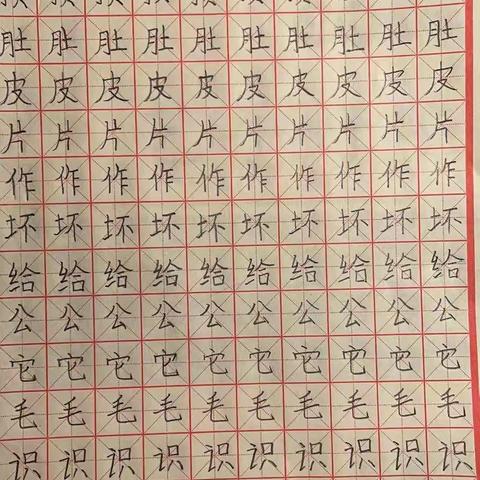 肚 肚 肚 肚 肚 肚 肚 肚 肚 肚
皮 皮 皮 皮 皮 皮 皮 皮 皮 皮
片 片 片 片 片 片 片 片 片 片
作 作 作 作 作 作 作 作 作 作
坏 坏 坏 坏 坏 坏 坏 坏 坏 坏
给 给 给 给 给 给 给 给 给 给
公 公 公 公 公 公 公 公 公 公
它 它 它 它 它 它 它 它 它 它
毛 毛 毛 毛 毛 毛 毛 毛 毛 毛
识 识 识 识 识 识 识 识 识 识